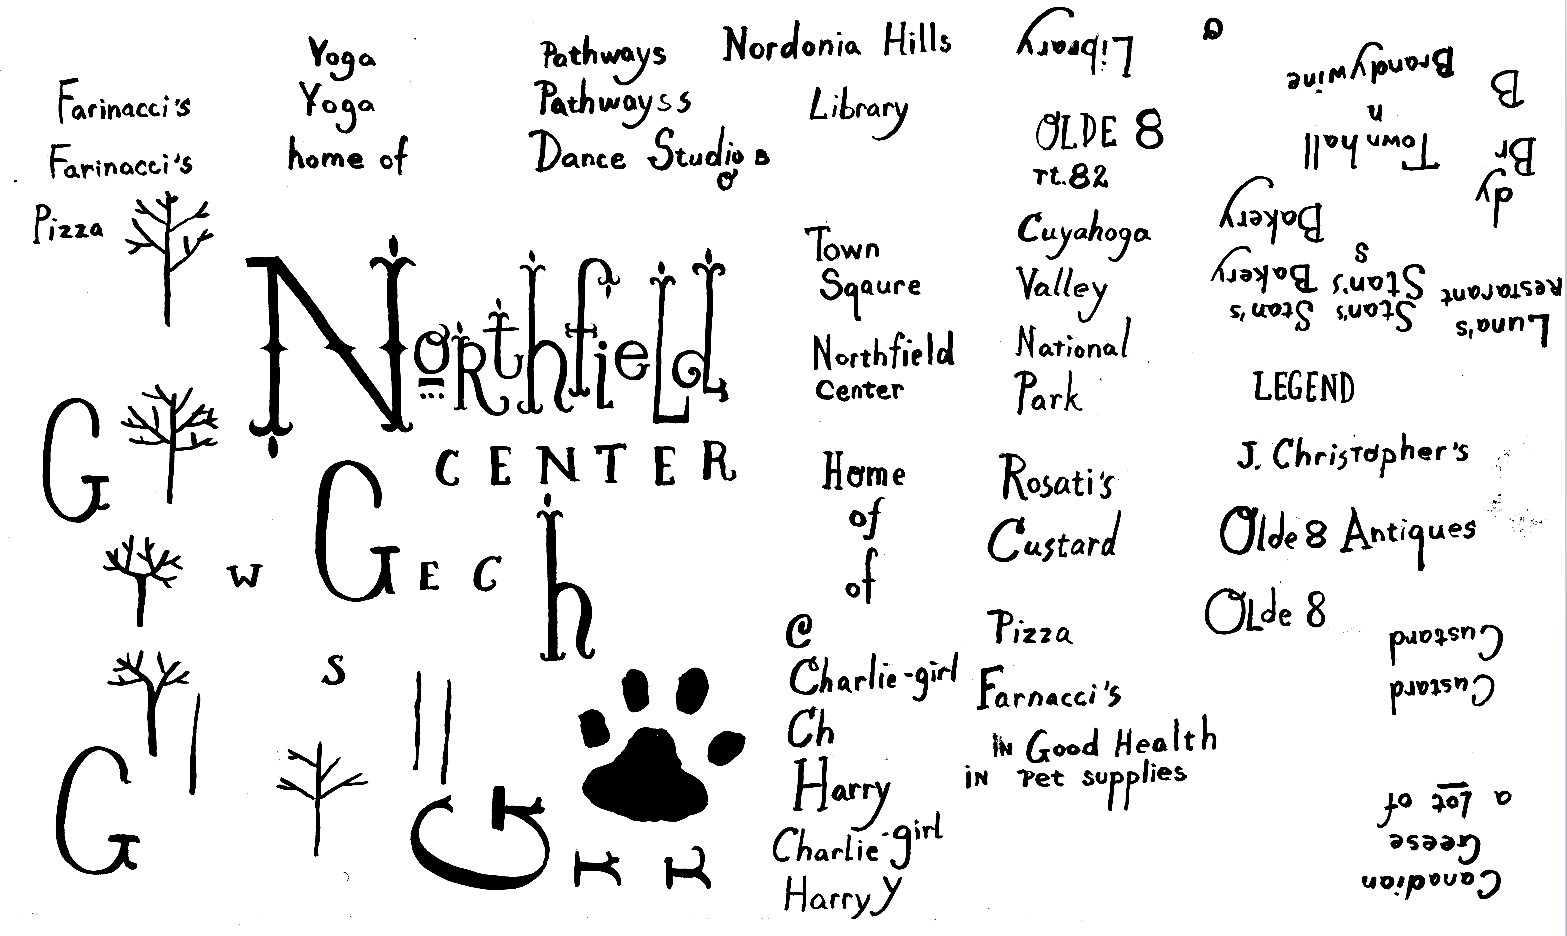 Farinacci's
Farinacci's
Pizza
Yoga
Yoga
home of
Pathways
Pathwayss
Dance Studio s
o
Nordonia Hills
Library
Northfield
CENTER
G
G
w
G E C h
S
G
G
I
r
Town
Sqaure
Northfield
Center
Home
of
of
C
Charlie-girl
Ch
Harry
Charlie-girl
Harry y
Library
OLDE 8
rt.82
Cuyahoga
Valley
National
Park
Rosati's
Custard
Pizza
Farnacci's
IN Good Health
IN Pet supplies
a
Brandywine
n
Town hall
B
Br
dy
Bakery
s
Stan's Bakery
Stan's Stan's
Luna's
Restarant
LEGEND
J. Christopher's
Olde 8 Antiques
OLde 8
Custard
Custard
Canadian
Geese
a Lot of